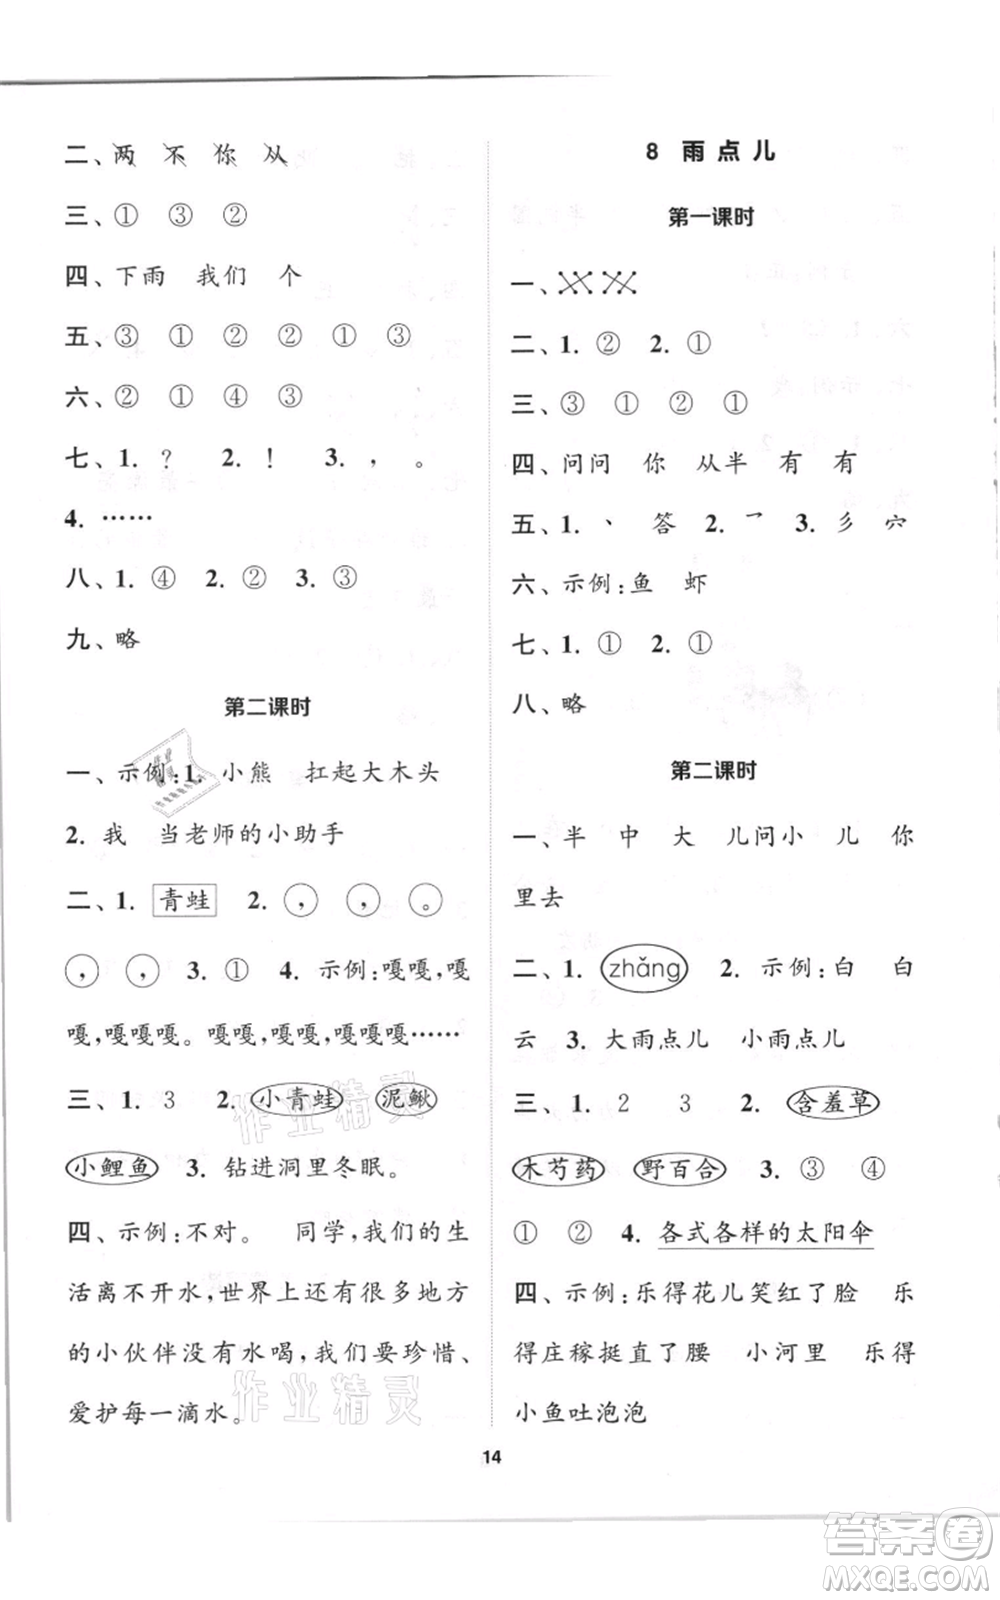 二、两 不 你 从
三、① ③ ②
四、下雨 我们 个
五、③ ① ② ② ① ③
六、② ① ④ ③
七、1. ? 2. ! 3. , 。
4. ……
八、1. ④ 2. ② 3. ③
九、略
第二课时
一、示例:1. 小熊 扛起大木头
2. 我 当老师的小助手
二、1. 青蛙 2. , , 。
, , 3. ① 4. 示例:嘎嘎,嘎
嘎,嘎嘎嘎。嘎嘎,嘎嘎,嘎嘎嘎……
三、1. 3 2. 小青蛙 泥鳅
小鲤鱼 3. 钻进洞里冬眠。
四、示例:不对。 同学,我们的生
活离不开水,世界上还有很多地方
的小伙伴没有水喝,我们要珍惜、
爱护每一滴水。
8 雨点儿
第一课时
一、
二、1. ② 2. ①
三、③ ① ② ①
四、问问 你 从半 有 有
五、1. 丶 答 2. 乛 3. 彡 穴
六、示例:鱼 虾
七、1. ① 2. ①
八、略
第二课时
一、半 中 大 儿问小 儿 你
里去
二、1. zhǎng 2. 示例:白 白
云 3. 大雨点儿 小雨点儿
三、1. 2 3 2. 含羞草
木芍药 野百合 3. ③ ④
① ② 4. 各式各样的太阳伞
四、示例:乐得花儿笑红了脸 乐
得庄稼挺直了腰 小河里 乐得
小鱼吐泡泡
14
作业精灵
作业精灵
答案圈
MXQE.COM